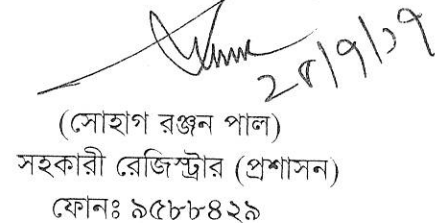 ২৮/৭/১৭
(সোহাগ রঞ্জন পাল)
সহকারী রেজিস্ট্রার (প্রশাসন)
ফোনঃ ৯৫৮৮৪২৯